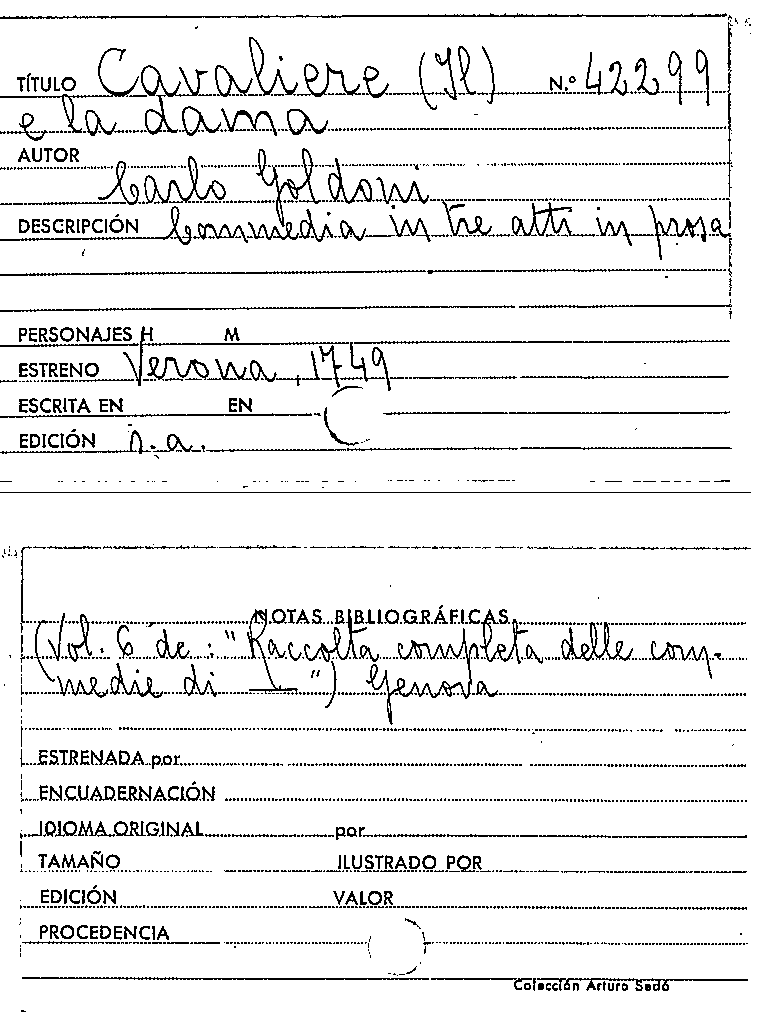 TÍTULO Cavaliere (Il) N.º 42299
e la dama
AUTOR
Carlo Goldoni
DESCRIPCIÓN Commedia in tre atti in prosa
PERSONAJES H M
ESTRENO Verona, 1749
ESCRITA EN EN
EDICIÓN n.a.
NOTAS BIBLIOGRÁFICAS
(Vol. 6 de: "Raccolta completa delle com-
medie di — ") Genova
ESTRENADA por
ENCUADERNACIÓN
IDIOMA ORIGINAL por
TAMAÑO ILUSTRADO POR
EDICIÓN VALOR
PROCEDENCIA
Colección Arturo Sedó